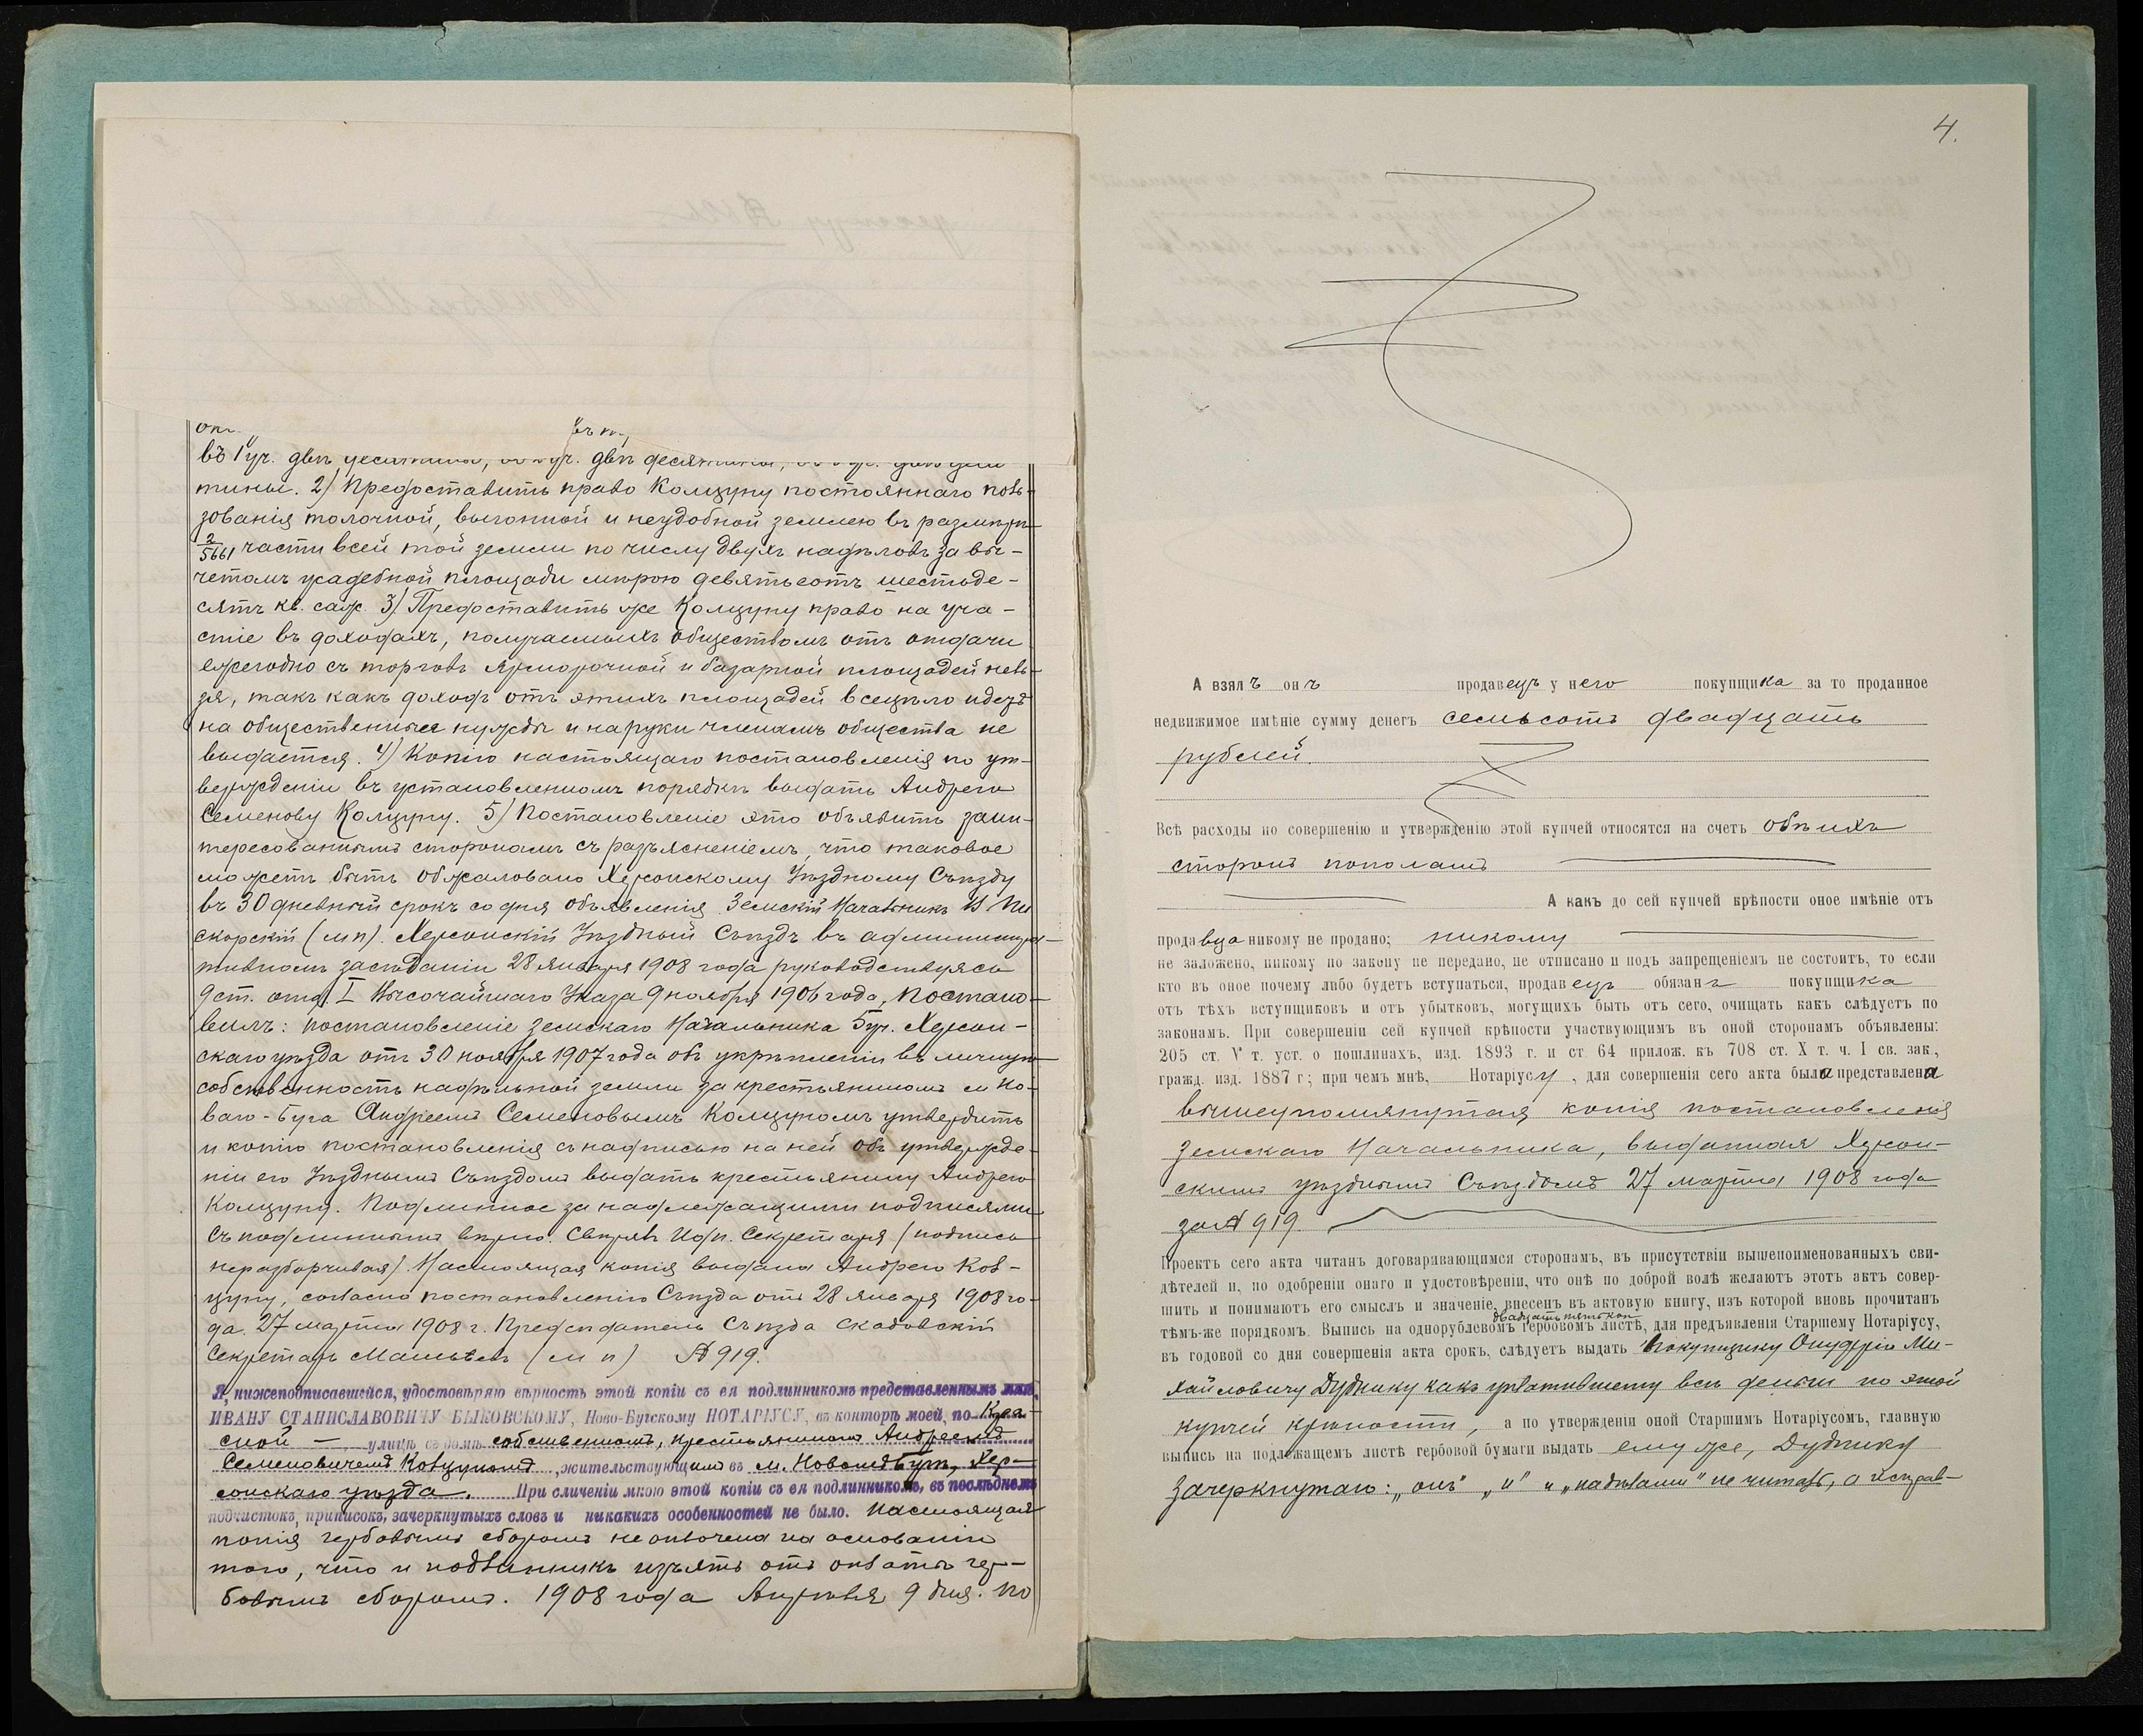 въ 1 уч. двѣ десятины, уч. двѣ десятины,
тины. 2) Предоставить право Колцуну постояннаго поль-
зованія толочной, выгонной и неудобной землею въ размѣрѣ
2/5661 части всей той земли по числу двухъ надѣловъ за вы-
четомъ усадебной площади мѣрою девятьсотъ шестьде-
сятъ кв. саж. 3) Предоставить же Колцуну право на уча-
стіе въ доходахъ, получаемыхъ обществомъ отъ отдачи
ежегодно съ торговъ ярморочной и базарной площадей нель-
зя, такъ какъ доходъ отъ этихъ площадей всецѣло идетъ
на общественныя нужды и на руки членамъ общества не
выдается. 4) Копію настоящаго постановленія по ут-
вержденіи въ установленномъ порядкѣ выдать Андрею
Семенову Колцуну. 5) Постановленіе это объявить заин-
тересованнымъ сторонамъ съ разъясненіемъ, что таковое
можетъ быть обжаловано Херсонскому Уѣздному Съѣзду
въ 30 дневный срокъ со дня объявленія. Земскій Начальникъ Пи
скорскій (мп). Херсонскій Уѣздный Съѣздъ въ администра-
тивномъ засѣданіи 28 января 1908 года руководствуясь
9 ст. отд. I Высочайшаго Указа 9 ноября 1906 года, постано-
вилъ: постановленіе земскаго Начальника 5 уч. Херсон-
скаго уѣзда отъ 30 ноября 1907 года объ укрѣпленіи въ личную
собственность надѣльной земли за крестьяниномъ м. Но-
ваго-Буга Андреемъ Семеновымъ Колцуномъ утвердить
и копію постановленія съ надписью на ней объ утвержде-
ніи его Уѣзднымъ Съѣздомъ выдать крестьянину Андрею
Колцуну. Подлинное за надлежащими подписями
Съ подлиннымъ вѣрно. Свѣрялъ И. об. н. Секретаря (подпись
неразборчивая). Настоящая копія выдана Андрею Кол-
цуну, согласно постановленію Съѣзда отъ 28 января 1908 го-
да. 27 марта 1908 г. Предсѣдатель Съѣзда Скадовскій
Секретарь (мп) № 919.
Я, нижеподписавшійся, удостовѣряю вѣрность этой копіи съ ея подлинникомъ представленнымъ мнѣ,
ИВАНУ СТАНИСЛАВОВИЧУ БЫКОВСКОМУ, Ново-Бугскому НОТАРІУСУ, въ конторѣ моей, по Крас-
ной — улицѣ въ домѣ собственномъ, крестьяниномъ Андреемъ
Семеновичемъ Колцуномъ, жительствующимъ въ м. Новомъ Бугѣ, Хер-
сонскаго уѣзда. При сличеніи мною этой копіи съ ея подлинникомъ, въ послѣднемъ
подчистокъ, приписокъ, зачеркнутыхъ словъ и никакихъ особенностей не было. Настоящая
копія гербовымъ сборомъ не оплочена на основаніи
того, что и подлинникъ изъятъ отъ оплаты гер-
бовымъ сборомъ. 1908 года Апрѣля 9 дня. По
4.
А взялъ онъ продавецъ у него покупщика за то проданное
недвижимое имѣніе сумму денегъ семьсотъ двадцать
рублей.
Всѣ расходы по совершенію и утвержденію этой купчей относятся на счетъ обѣихъ
сторонъ пополамъ
А какъ до сей купчей крѣпости оное имѣніе отъ
продавца никому не продано; никому
не заложено, никому по закону не передано, не отписано и подъ запрещеніемъ не состоитъ, то если
кто въ оное почему либо будетъ вступаться, продавецъ обязанъ покупщика
отъ тѣхъ вступщиковъ и отъ убытковъ, могущихъ быть отъ сего, очищать какъ слѣдуетъ по
законамъ. При совершеніи сей купчей крѣпости участвующимъ въ оной сторонамъ объявлены:
205 ст. V т. уст. о пошлинахъ, изд. 1893 г. и ст 64 прилож. къ 708 ст. X т. ч. I св. зак.,
гражд. изд. 1887 г; при чемъ мнѣ, Нотаріусу, для совершенія сего акта была представлена
вышеупомянутая копія постановленія
Земскаго Начальника, выданная Херсон-
скимъ уѣзднымъ Съѣздомъ 27 марта 1908 года
за № 919.
Проектъ сего акта читанъ договаривающимся сторонамъ, въ присутствіи вышепоименованныхъ сви-
дѣтелей и, по одобреніи онаго и удостовѣреніи, что онѣ по доброй волѣ желаютъ этотъ актъ совер-
шить и понимаютъ его смыслъ и значеніе, внесенъ въ актовую книгу, изъ которой вновь прочитанъ
двадцать пять коп.
тѣмъ-же порядкомъ. Выпись на однорублевомъ гербовомъ листѣ, для предъявленія Старшему Нотаріусу,
въ годовой со дня совершенія акта срокъ, слѣдуетъ выдать покупщику Онуфрію Ми-
хайловичу Дуднику какъ уплатившему всѣ деньги по этой
купчей крѣпости, а по утвержденіи оной Старшимъ Нотаріусомъ, главную
выпись на подлежащемъ листѣ гербовой бумаги выдать ему же, Дуднику
Зачеркнутаго: „онъ" „и" и „надѣлами" не читать, а исправ-